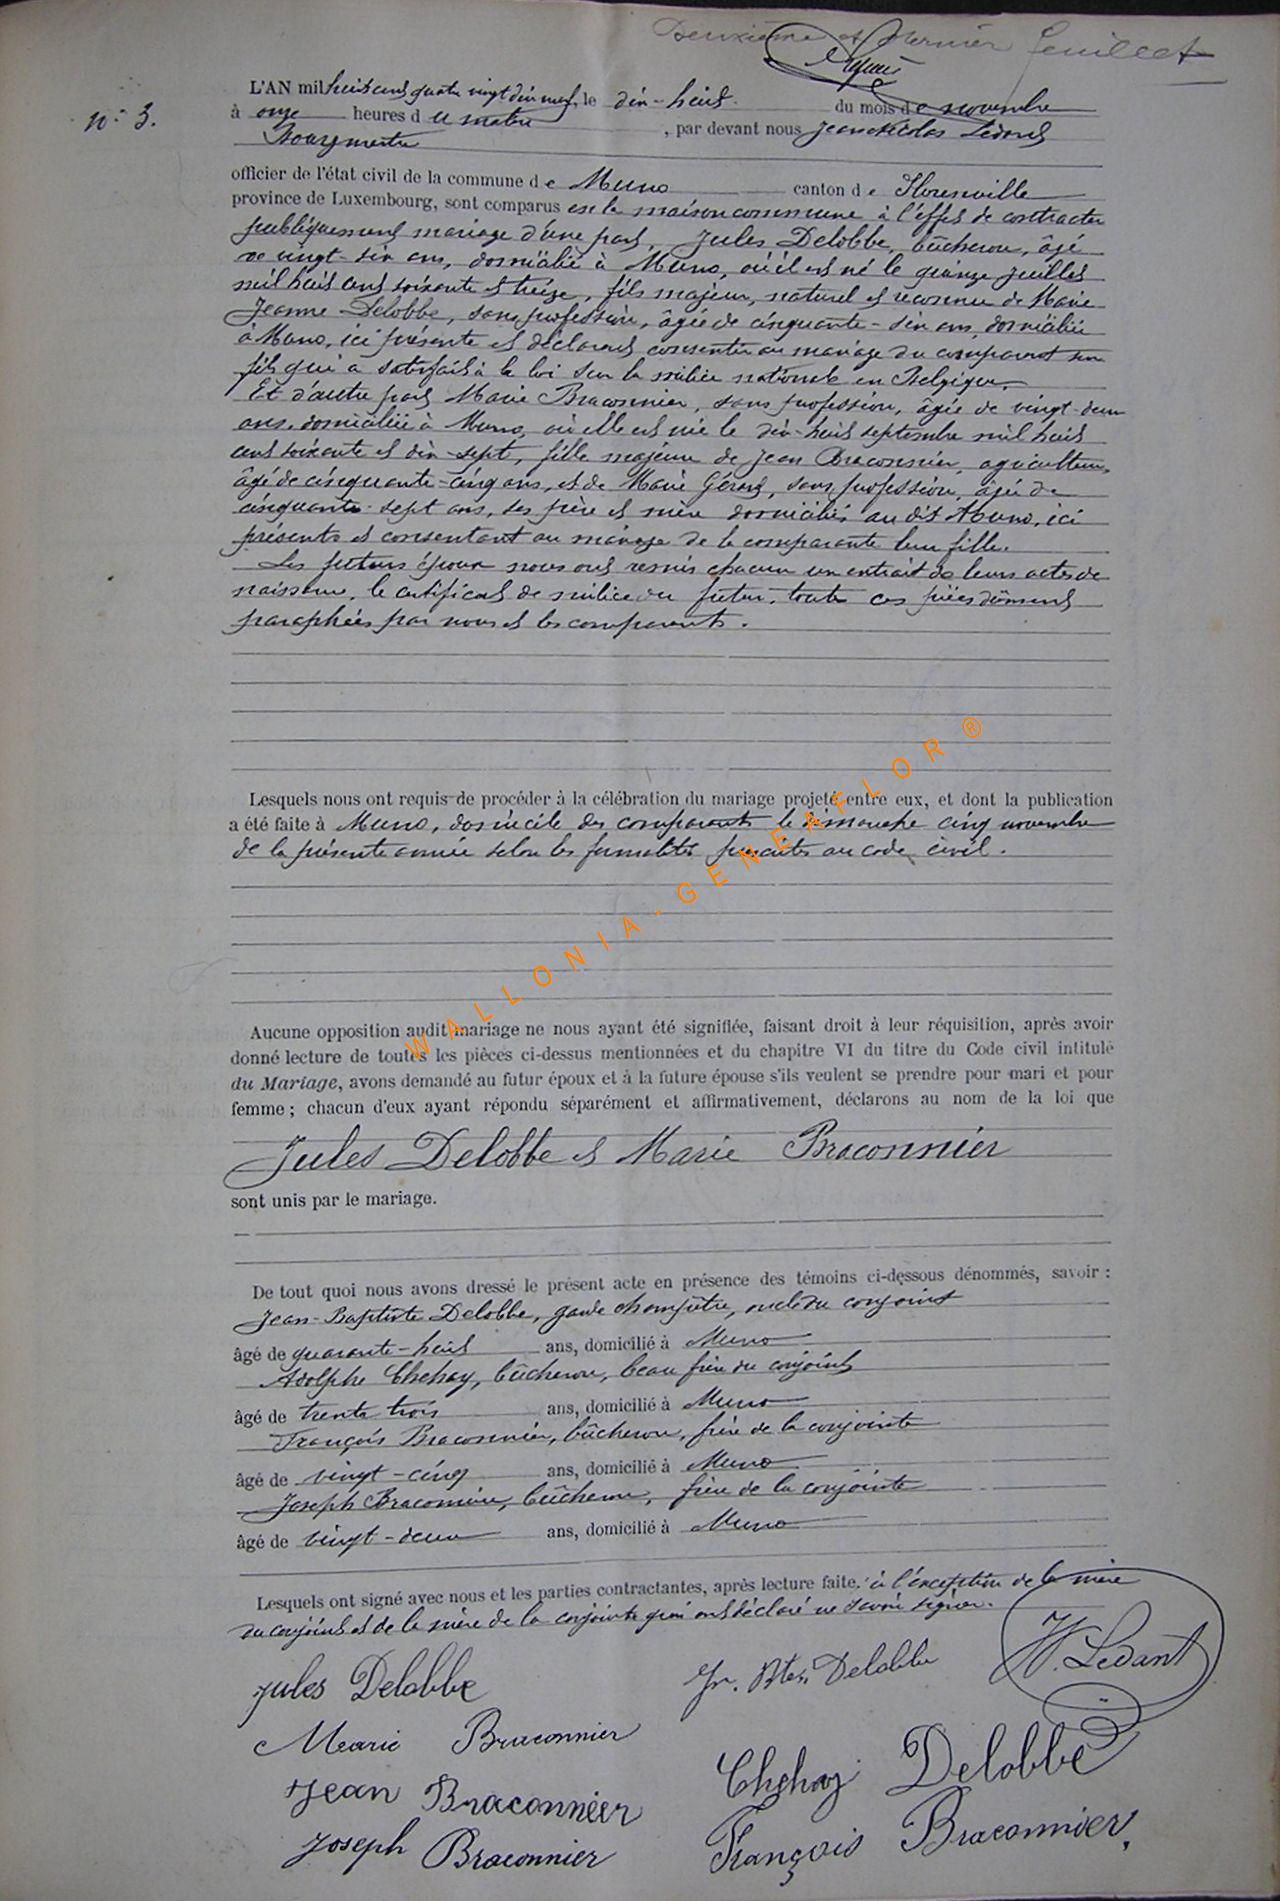 Deuxième et dernier feuillet
n° 3.
L'AN mil huit cent quatre vingt dix neuf, le dix-huit du mois de novembre
à onze heures du matin, par devant nous Jean Nicolas Ledant
Bourgmestre
officier de l'état civil de la commune de Muno canton de Florenville
province de Luxembourg, sont comparus en la maison commune à l'effet de contracter
publiquement mariage d'une part, Jules Delobbe, bûcheron, âgé
de vingt-six ans, domicilié à Muno, où il est né le quinze juillet
mil huit cent soixante et treize, fils majeur, naturel et reconnu de Marie
Jeanne Delobbe, sans profession, âgée de cinquante-six ans, domiciliée
à Muno, ici présente et déclarant consentir au mariage du comparant son
fils qui a satisfait à la loi sur la milice nationale en Belgique.
Et d'autre part Marie Braconnier, sans profession, âgée de vingt-deux
ans, domiciliée à Muno, où elle est née le dix-huit septembre mil huit
cent soixante et dix-sept, fille majeure de Jean Braconnier, agriculteur,
âgé de cinquante-cinq ans, et de Marie Gérard, sans profession, âgée de
cinquante-sept ans, ses père et mère domiciliés au dit Muno, ici
présents et consentant au mariage de la comparante leur fille.
Les futurs époux nous ont remis chacun un extrait de leurs actes de
naissance, le certificat de milice du futur, toutes ces pièces dûment
paraphées par nous et les comparants.
WALLONIA-GENEAFLOR®
Lesquels nous ont requis de procéder à la célébration du mariage projeté entre eux, et dont la publication
a été faite à Muno, domicile des comparants le dimanche cinq novembre
de la présente année selon les formalités prescrites au code civil.
Aucune opposition audit mariage ne nous ayant été signifiée, faisant droit à leur réquisition, après avoir
donné lecture de toutes les pièces ci-dessus mentionnées et du chapitre VI du titre du Code civil intitulé
du Mariage, avons demandé au futur époux et à la future épouse s'ils veulent se prendre pour mari et pour
femme ; chacun d'eux ayant répondu séparément et affirmativement, déclarons au nom de la loi que
Jules Delobbe et Marie Braconnier
sont unis par le mariage.
De tout quoi nous avons dressé le présent acte en présence des témoins ci-dessous dénommés, savoir :
Jean-Baptiste Delobbe, garde champêtre, oncle du conjoint
âgé de quarante-huit ans, domicilié à Muno
Adolphe Chehay, bûcheron, beau frère du conjoint
âgé de trente trois ans, domicilié à Muno
François Braconnier, bûcheron, frère de la conjointe
âgé de vingt-cinq ans, domicilié à Muno
Joseph Braconnier, bûcheron, frère de la conjointe
âgé de vingt-deux ans, domicilié à Muno
Lesquels ont signé avec nous et les parties contractantes, après lecture faite. à l'exception de la mère
du conjoint et de la mère de la conjointe qui ont déclaré ne savoir signer.
Jules Delobbe
Jn. Bte. Delobbe
N. Ledant
Marie Braconnier
Chehay Delobbe
Jean Braconnier
François Braconnier.
Joseph Braconnier